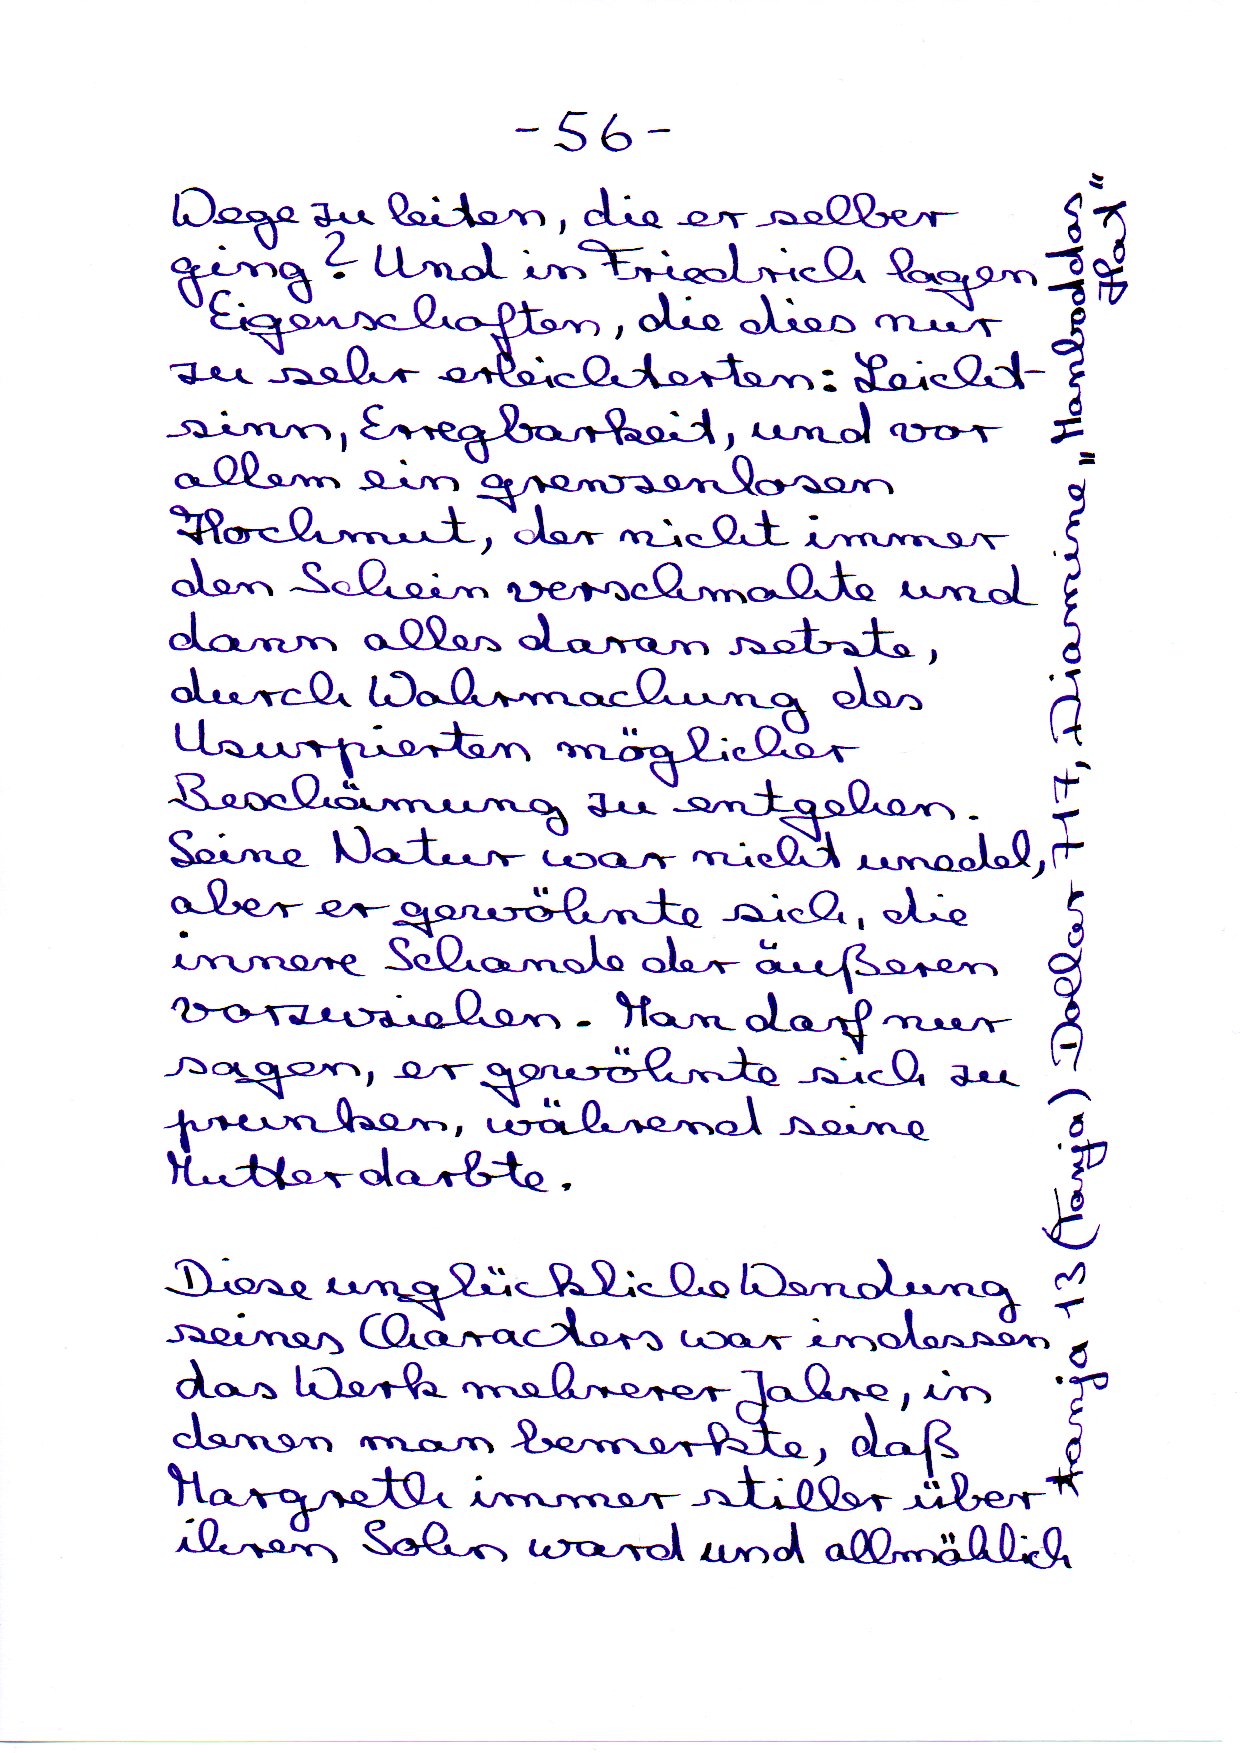 - 56 -
Wege zu leiten, die er selber
ging? Und in Friedrich lagen
Eigenschaften, die dies nur
zu sehr erleichterten: Leicht-
sinn, Erregbarkeit, und vor
allem ein grenzenlosen
Hochmut, der nicht immer
den Schein verschmahte und
dann alles daran setzte,
durch Wahrmachung des
Usurpierten möglicher
Beschämung zu entgehen.
Seine Natur war nicht unedel,
aber er gewöhnte sich, die
innere Schande der äußeren
vorzuziehen. Man darf nur
sagen, er gewöhnte sich zu
prunken, während seine
Mutter darbte.
Diese unglückliche Wendung
seines Characters war indessen
das Werk mehrerer Jahre, in
denen man bemerkte, daß
Margreth immer stiller über
ihren Sohn ward und allmählich
Tanja 13 (Tanja) Dollar 717, Diamine "Hanboddas
Hat"